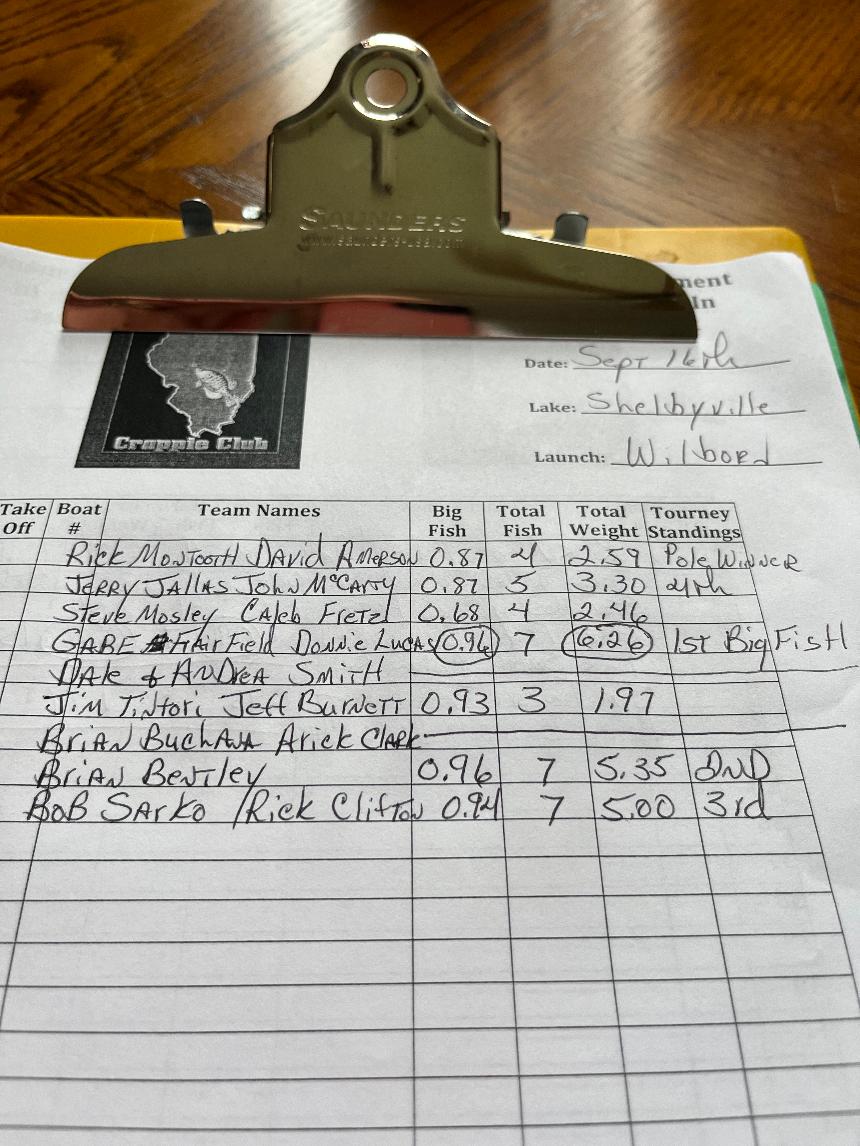 SAUNDERS
www.saunders-usa.com
ment
In
Date: Sept 16th
Lake: Shelbyville
Launch: Wilbord
Crappie Club
Take Off Boat # Team Names Big Fish Total Fish Total Weight Tourney Standings
Rick Montooth David Amerson 0.87 4 2.59 Pole Winner
Jerry Jallas John McCarty 0.87 5 3.30 4th
Steve Mosley Caleb Fretzl 0.68 4 2.46
Gabe Fairfield Donnie Lucas 0.96 7 6.26 1st Big Fish
Dale & Andrea Smith
Jim Tintori Jeff Burnett 0.93 3 1.97
Brian Buchana Arick Clark
Brian Bentley 0.96 7 5.35 2nd
Bob Sarko / Rick Clifton 0.94 7 5.00 3rd